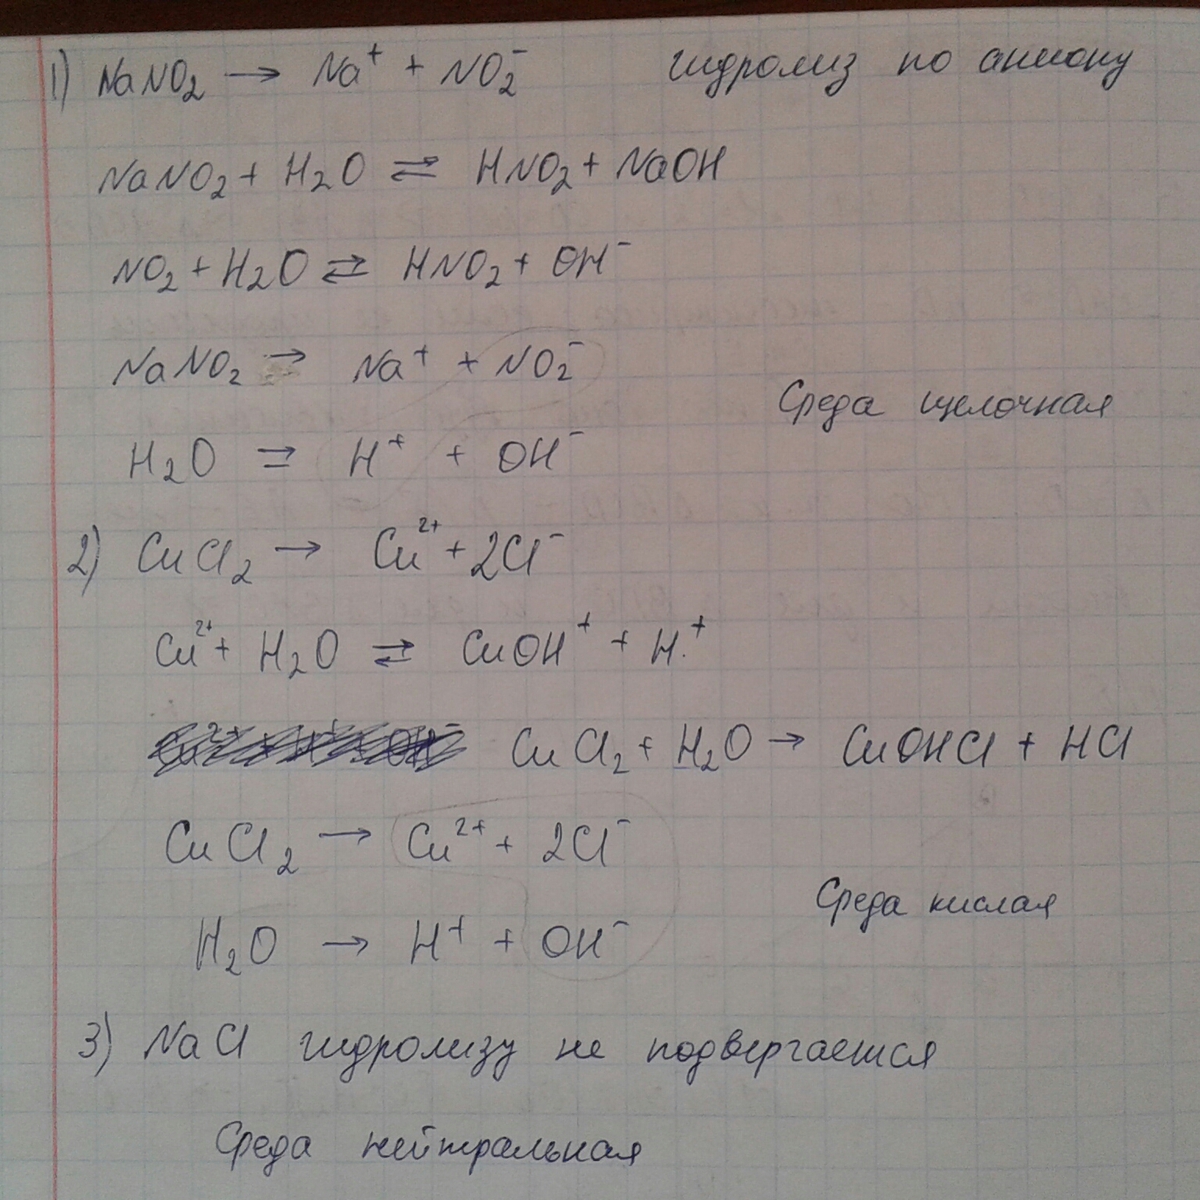 1) NaNO₂ → Na⁺ + NO₂⁻ гидролиз по аниону
NaNO₂ + H₂O ⇄ HNO₂ + NaOH
NO₂ + H₂O ⇄ HNO₂ + OH⁻
NaNO₂ ⇄ Na⁺ + NO₂⁻
Среда щелочная
H₂O ⇄ H⁺ + OH⁻
2) CuCl₂ → Cu²⁺ + 2Cl⁻
Cu²⁺ + H₂O ⇄ CuOH⁺ + H⁺
CuCl₂ + H₂O → CuOHCl + HCl
CuCl₂ → Cu²⁺ + 2Cl⁻
Среда кислая
H₂O → H⁺ + OH⁻
3) NaCl гидролизу не подвергается
Среда нейтральная